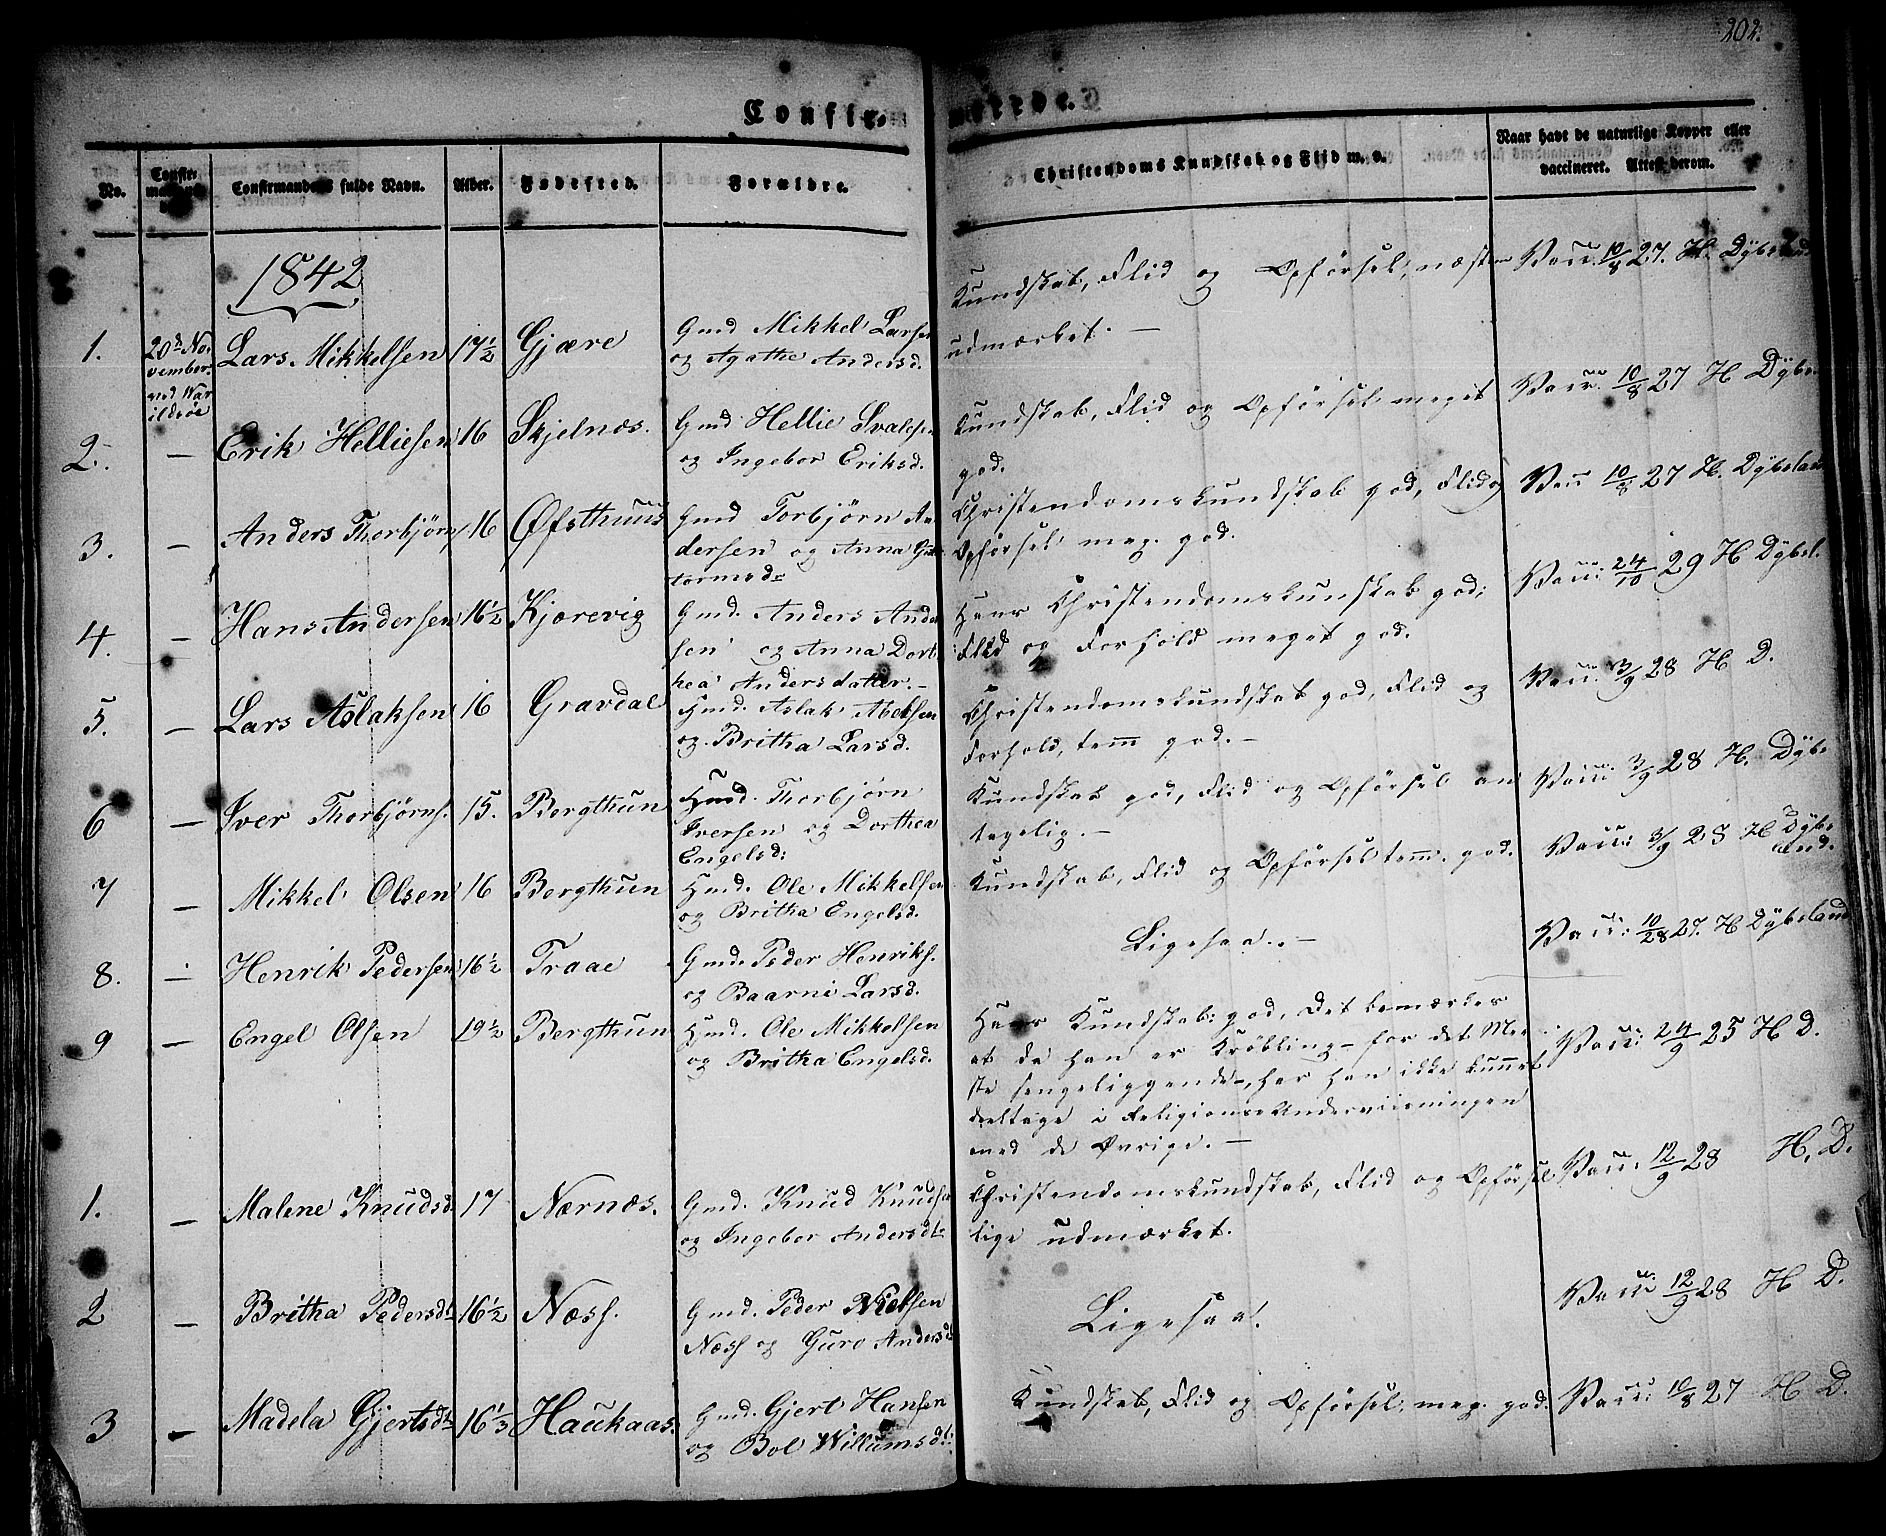 202.
Confir-
merede.
No.
Confir-
Confirmandens fulde Navn.
Alder.
Fødested.
Forældre.
Christendoms Kundskab og Flid m. v.
Naar havt de naturlige Kopper eller
vaccineret. Attest derom.
1842
1.
20d No-
vember
ved
Lars Mikkelsen
17½
Gjære
Gmd Mikkel Larsen
og Agathe Andersd.
Kundskab, Flid og Opførsel næsten
udmærket. —
Vacc. 10/8 27. H. Dybeland
2.
—
Erik Helliesen
16
Skjelnæs.
Gmd Hellie Svalesen
og Ingebor Eriksd.
Kundskab, Flid og Opførsel meget
god.
Vacc. 10/8 27 H Dybe
3.
—
Anders Thorbjørn
16
Øfsthuus
Gmd Torbjørn An
dersen og Anna Gut
tormsd
Christendomskundskab god, Flid og
Opførsel meg. god.
Vacc 10/8 27 H. Dybeland
4.
—
Hans Andersen
16½
Kjærevig
Gmd. Anders Ander
sen og Anna Dort
hea Andersdatter. —
Hans Christendomskunskab god;
Flid og Forhold meget god.
Vacc: 24/10 29 H Dybel.
5.
—
Lars Aslaksen
16
Gravdal
Hmd. Aslak Abelsen
og Britha Larsd.
Christendomskundskab god, Flid og
Forhold, tem god. —
Vacc. 3/9 28 H D.
6
—
Iver Thorbjørns.
15.
Bergthun
Hmd. Thorbjørn
Iversen og Dorthea
Engelsd:
Kundskab god, Flid og Opførsel an
tagelig. —
Vacc: 3/9 28 H. Dybe
7
—
Mikkel Olsen
16
Bergthun
Hmd. Ole Mikkelsen
og Britha Engelsd.
Kundskab, Flid og Opførsel tem. god.
Vacc: 3/9 28 H Dybe
land.
8.
—
Henrik Pedersen
16½
Traae
Gmd. Peder Henriks.
og Baarni Larsd.
Ligesaa. —
Vacc: 10/28 27. H Dybeland
9
—
Engel Olsen
19½
Bergthun
Hmd. Ole Mikkelsen
og Britha Engelsd.
Hans Kundskab: god, Det bemærkes
at da han er Krøbling — for det Me-
ste sengeliggende —, har han ikke kunnet
deeltage i Religions-Underviisningen
med de Øvrige. —
Vacc: 24/9 25 H D.
1.
—
Malene Knudsd.
17
Nærnæs.
Gmd. Knud Knuds
og Ingebor Andersdt
Christendomskundskab, Flid og Opførsel
lige udmærket.
Vacc: 12/9 28 H. D.
2
—
Britha Pedersdt
16½
Næss.
Gmd. Peder Nielsen
Næss og Guro Andersd
Ligesaa!
Vacc: 12/9 28 H D.
3
—
Madela Gjertsdt
16⅓
Haukaas.
Gmd. Gjert Hansen
og Bol Willumsdt:
Kundskab, Flid og Opførsel, meg. god.
Vacc: 10/8 27 H D.